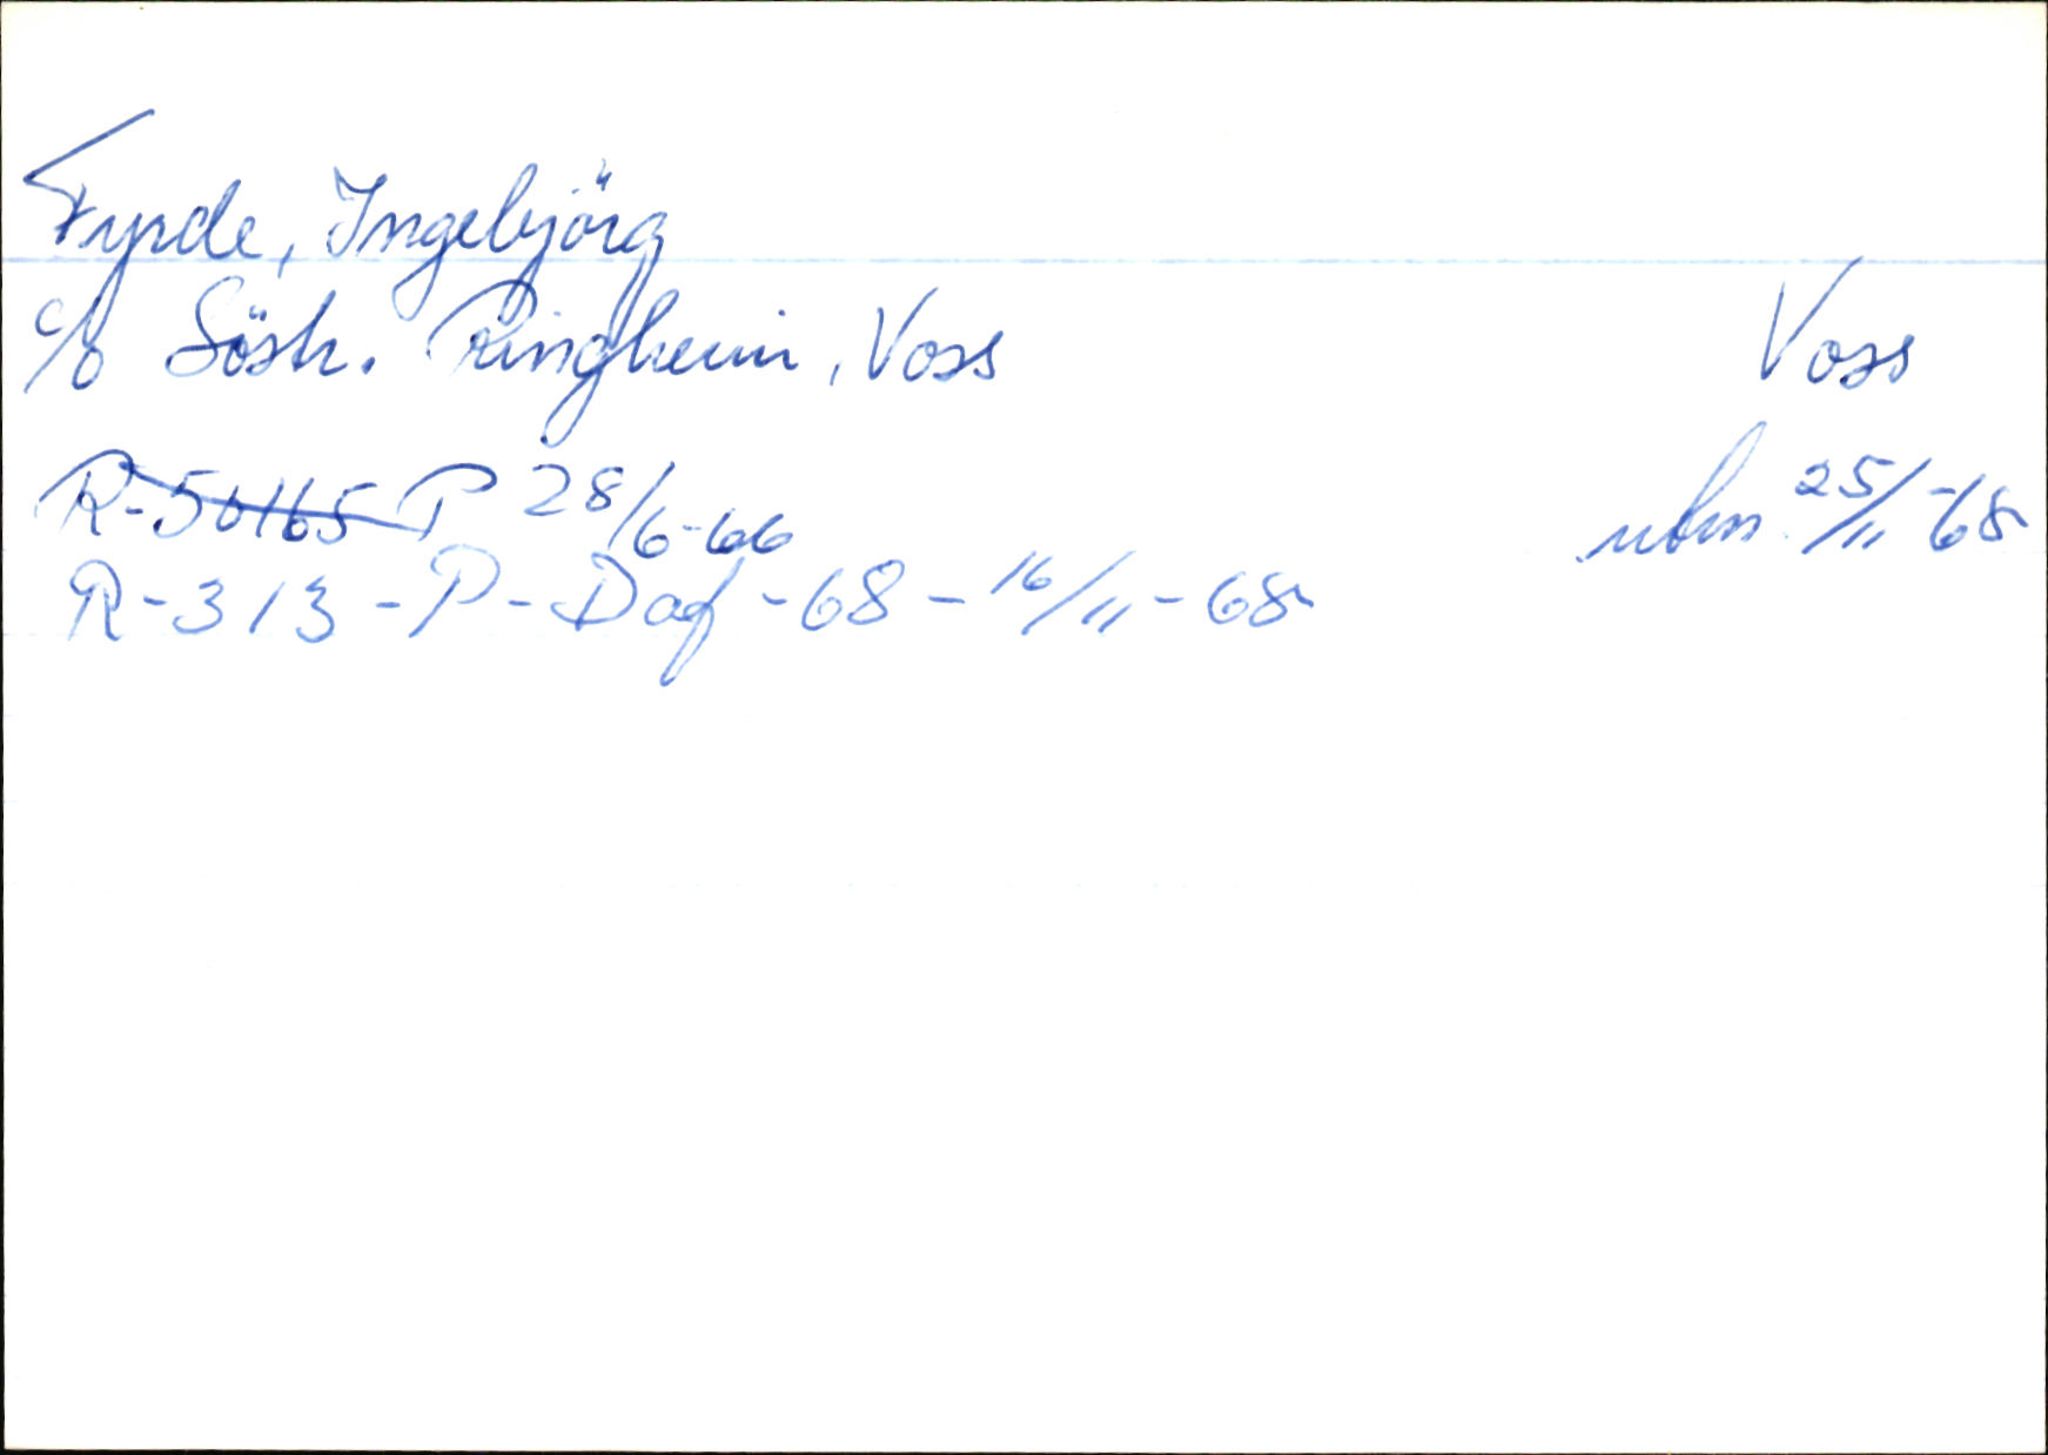 Fyrde, Ingebjörg
c/o Söstr. Ringheim, Voss Voss
R-50165 P 28/6-66 utm 25/11-68
R-313-P-Daf-68-16/11-68